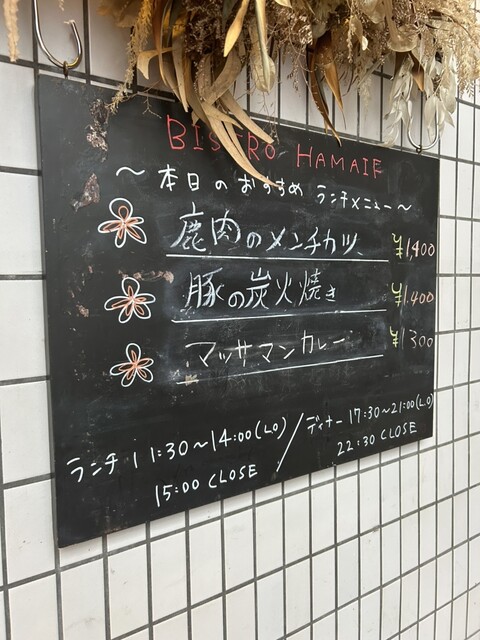 BISTRO HAMAIF
～本日のおすすめ ランチメニュー～
鹿肉のメンチカツ ¥1400
豚の炭火焼き ¥1.400
マッサマンカレー ¥1300
ランチ 11:30～14:00(L.O) / ディナー 17:30～21:00(L.O)
15:00 CLOSE 22:30 CLOSE